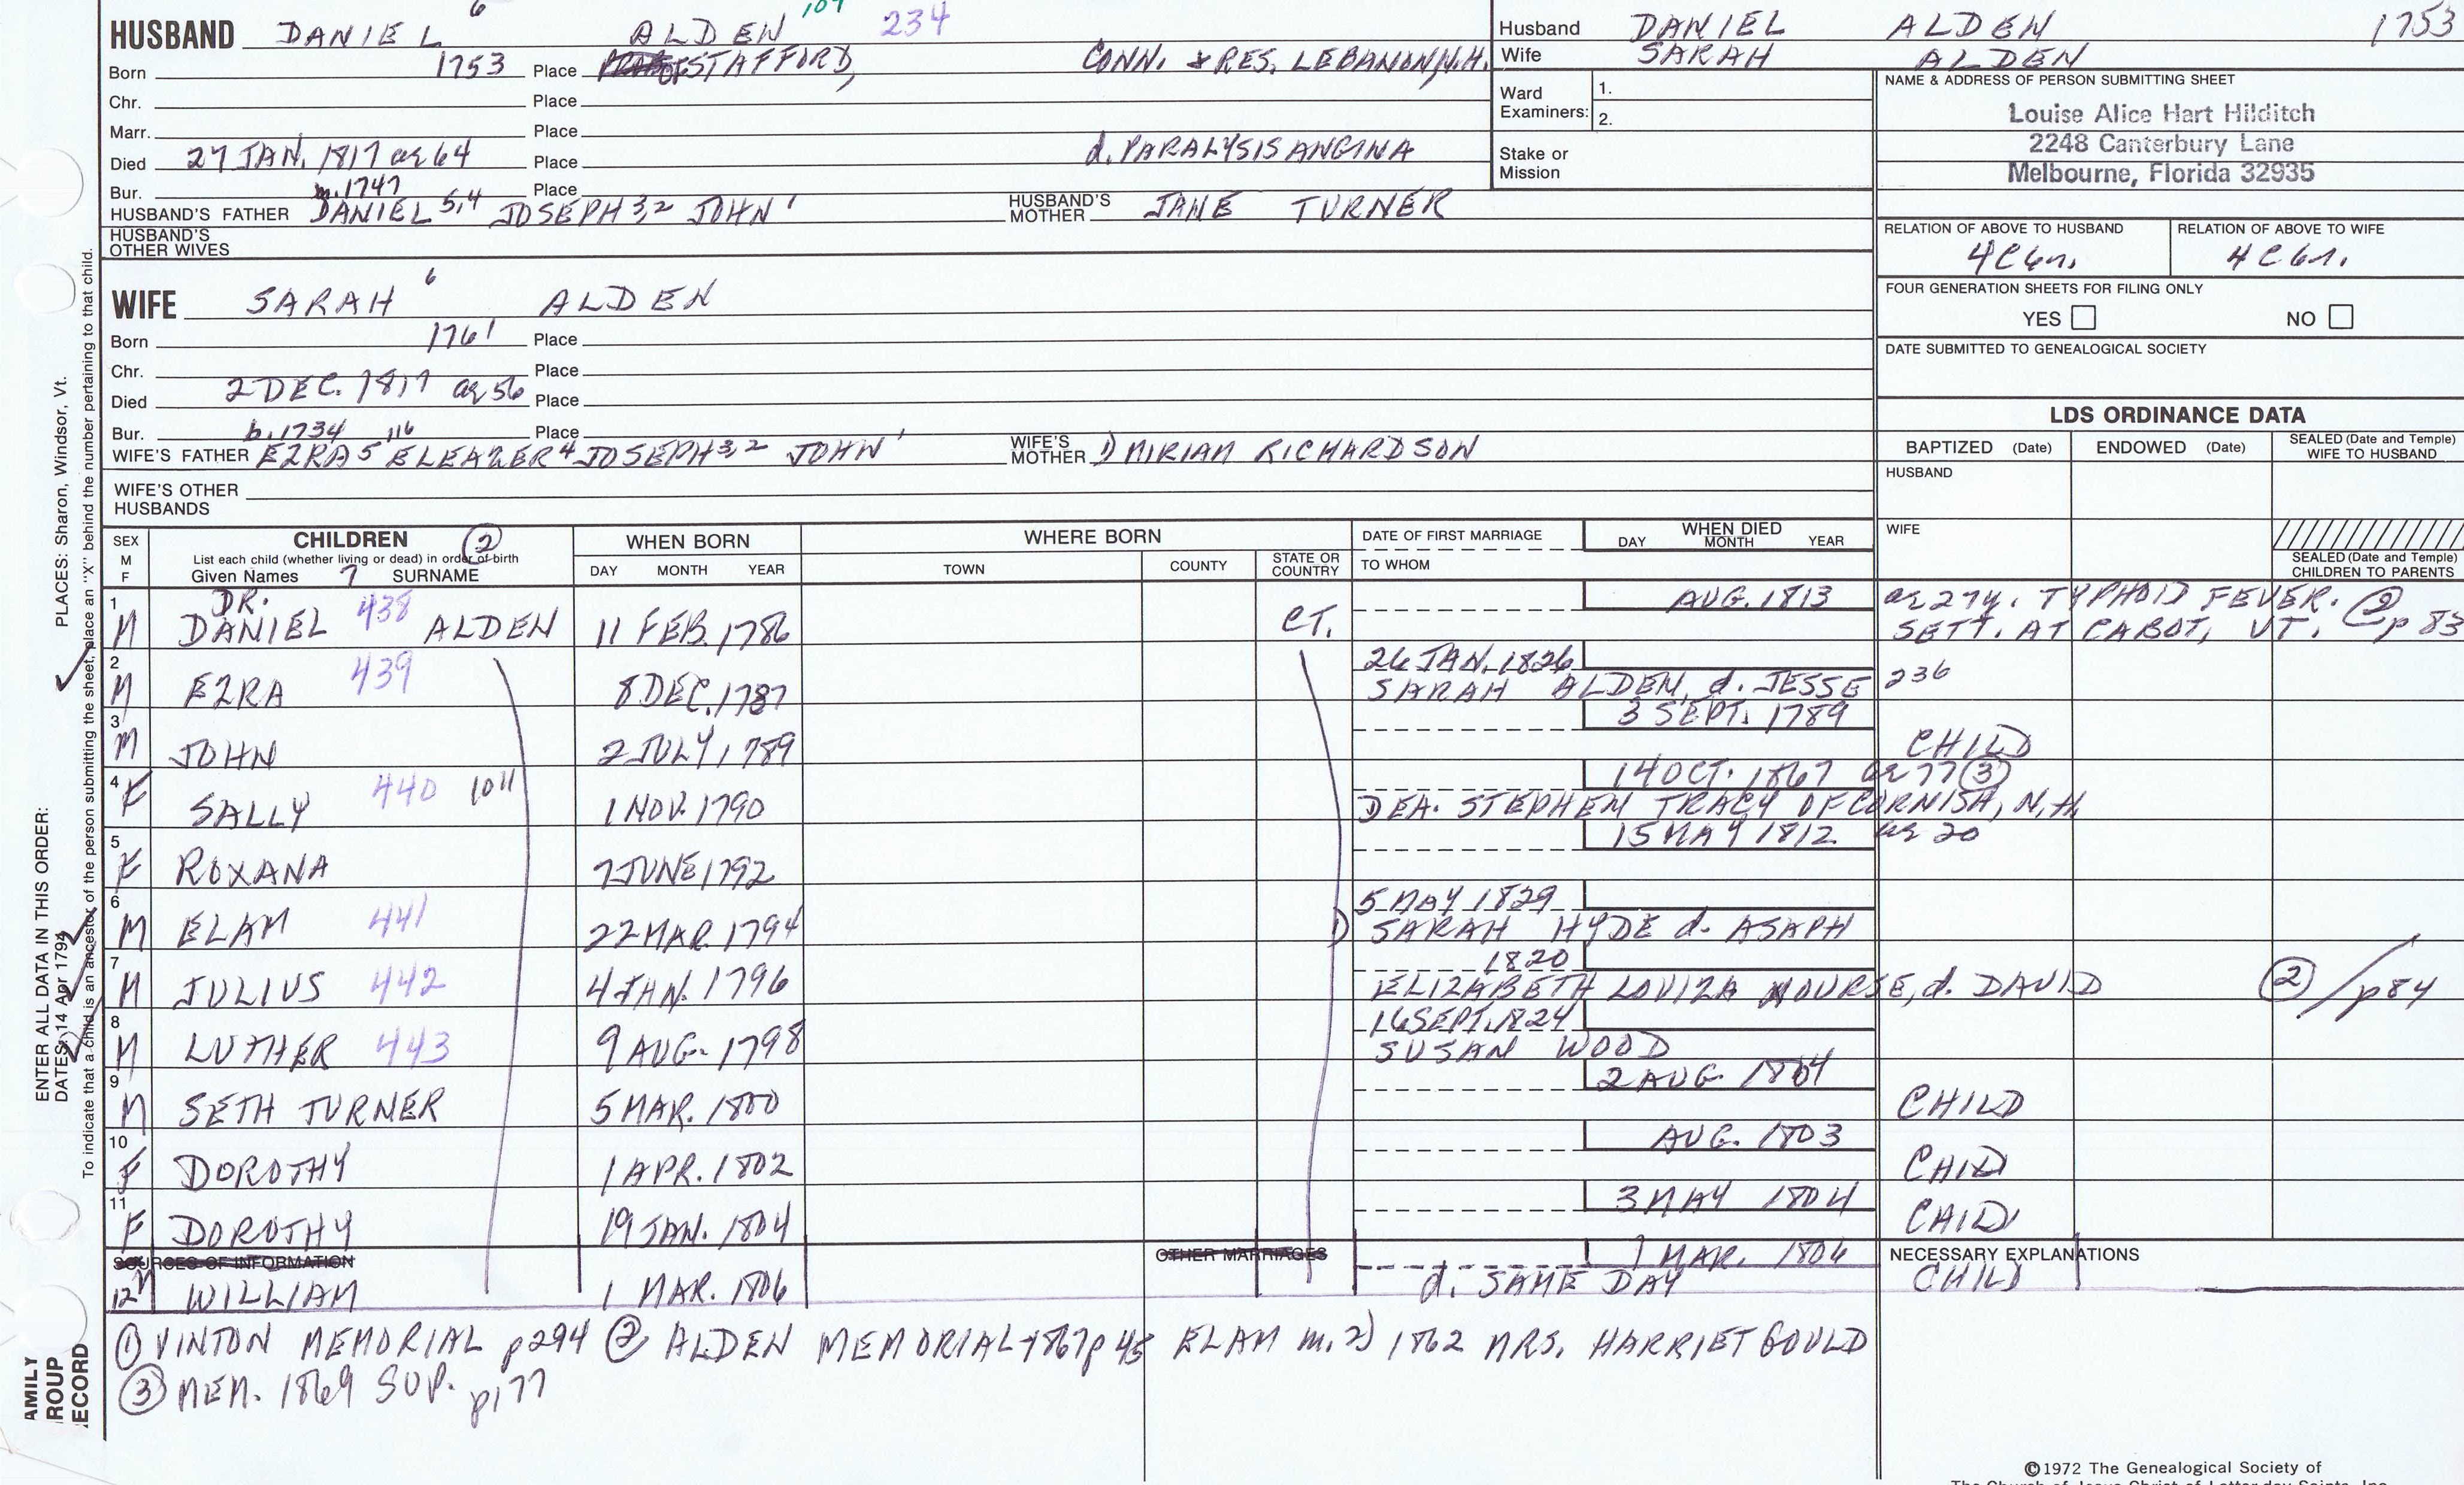 6 107
HUSBAND DANIEL ALDEN 234
Born 1753 Place STAFFORD, CONN. & RES. LEBANON, N.H.
Chr. Place
Marr. Place
Died 27 JAN. 1817 ae 64 Place d. PARALYSIS ANGINA
Bur. m. 1747 Place
HUSBAND'S FATHER DANIEL 5,4 JOSEPH 3,2 JOHN 1 HUSBAND'S MOTHER JANE TURNER
HUSBAND'S OTHER WIVES
6
WIFE SARAH ALDEN
Born 1761 Place
Chr. Place
Died 2 DEC. 1817 ae 56 Place
Bur. b. 1734 116 Place
WIFE'S FATHER EZRA 5 ELEAZER 4 JOSEPH 3,2 JOHN 1 WIFE'S MOTHER 1) MIRIAM RICHARDSON
WIFE'S OTHER HUSBANDS
Husband DANIEL ALDEN 1753
Wife SARAH ALDEN
Ward Examiners: 1.
2.
Stake or Mission
NAME & ADDRESS OF PERSON SUBMITTING SHEET
Louise Alice Hart Hilditch
2248 Canterbury Lane
Melbourne, Florida 32935
RELATION OF ABOVE TO HUSBAND RELATION OF ABOVE TO WIFE
4C6r. 4C6r.
FOUR GENERATION SHEETS FOR FILING ONLY
YES NO
DATE SUBMITTED TO GENEALOGICAL SOCIETY
LDS ORDINANCE DATA
BAPTIZED (Date) ENDOWED (Date) SEALED (Date and Temple) WIFE TO HUSBAND
HUSBAND
WIFE
SEALED (Date and Temple) CHILDREN TO PARENTS
SEX M F CHILDREN 2 WHEN BORN WHERE BORN DATE OF FIRST MARRIAGE WHEN DIED
List each child (whether living or dead) in order of birth
Given Names 7 SURNAME DAY MONTH YEAR TOWN COUNTY STATE OR COUNTRY TO WHOM DAY MONTH YEAR
1 M DR. DANIEL 438 ALDEN 11 FEB. 1786 CT. AUG. 1813 ae 27y. TYPHOID FEVER. 2
SETT. AT CABOT, VT. p 83
2 M EZRA 439 8 DEC. 1787 26 JAN. 1826 SARAH ALDEN, d. JESSE 236
3 M JOHN 2 JULY 1789 3 SEPT. 1789 CHILD
4 F SALLY 440 1011 1 NOV. 1790 14 OCT. 1867 ae 77 3
DEA. STEPHEN TRACY OF CORNISH, N.H.
5 F ROXANA 7 JUNE 1792 15 MAY 1812 ae 20
6 M ELAM 441 22 MAR. 1794 5 MAY 1829
1) SARAH HYDE d. ASAPH
7 M JULIUS 442 4 JAN. 1796 1820
ELIZABETH LOVIZA NOURSE, d. DAVID 2 / p84
8 M LUTHER 443 9 AUG. 1798 16 SEPT. 1824
SUSAN WOOD
9 M SETH TURNER 5 MAR. 1800 2 AUG. 1804 CHILD
10 F DOROTHY 1 APR. 1802 AUG. 1803 CHILD
11 F DOROTHY 19 JAN. 1804 3 MAY 1804 CHILD
SOURCES OF INFORMATION OTHER MARRIAGES NECESSARY EXPLANATIONS
12 M WILLIAM 1 MAR. 1806 1 MAR. 1806 d. SAME DAY CHILD
1 VINTON MEMORIAL p294 2 ALDEN MEMORIAL 1867 p 45 ELAM m. 2) 1862 MRS. HARRIET GOULD
3 MEM. 1869 SUP. p177
©1972 The Genealogical Society of
The Church of Jesus Christ of Latter-day Saints, Inc.
ENTER ALL DATA IN THIS ORDER: PLACES: Sharon, Windsor, Vt.
DATES: 14 Apr 1794
To indicate that a child is an ancestor of the person submitting the sheet, place an "X" behind the number pertaining to that child.
AMILY
ROUP
ECORD